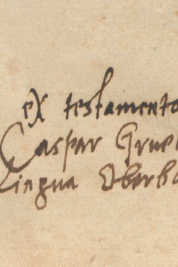 ex testamento
Caspar Grue
Lingua Oberba